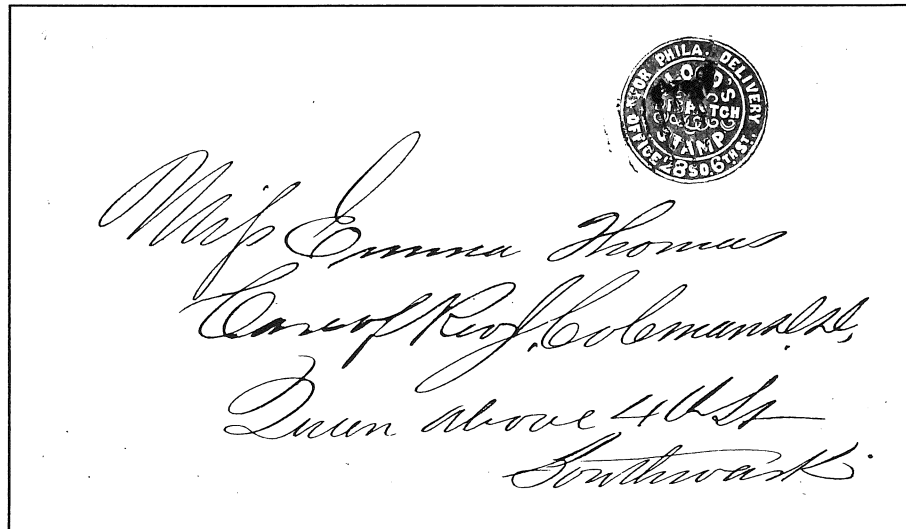 FOR PHILA. DELIVERY
BLOOD'S
DESPATCH
STAMP
OFFICE 28 SO. 6TH ST.
Miss Emma Thomas
Care of Rev J. Coleman
Queen above 4th St
Southwark